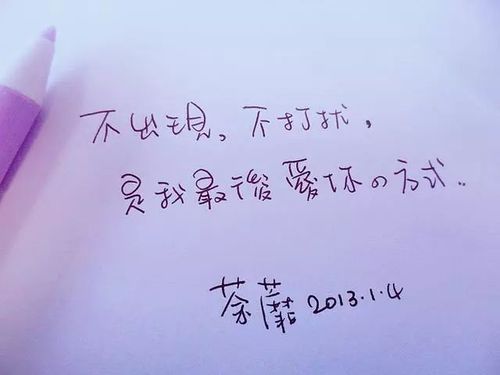 不出現。不打扰，
是我最後愛你の方式..
荼蘼 2013.1.4